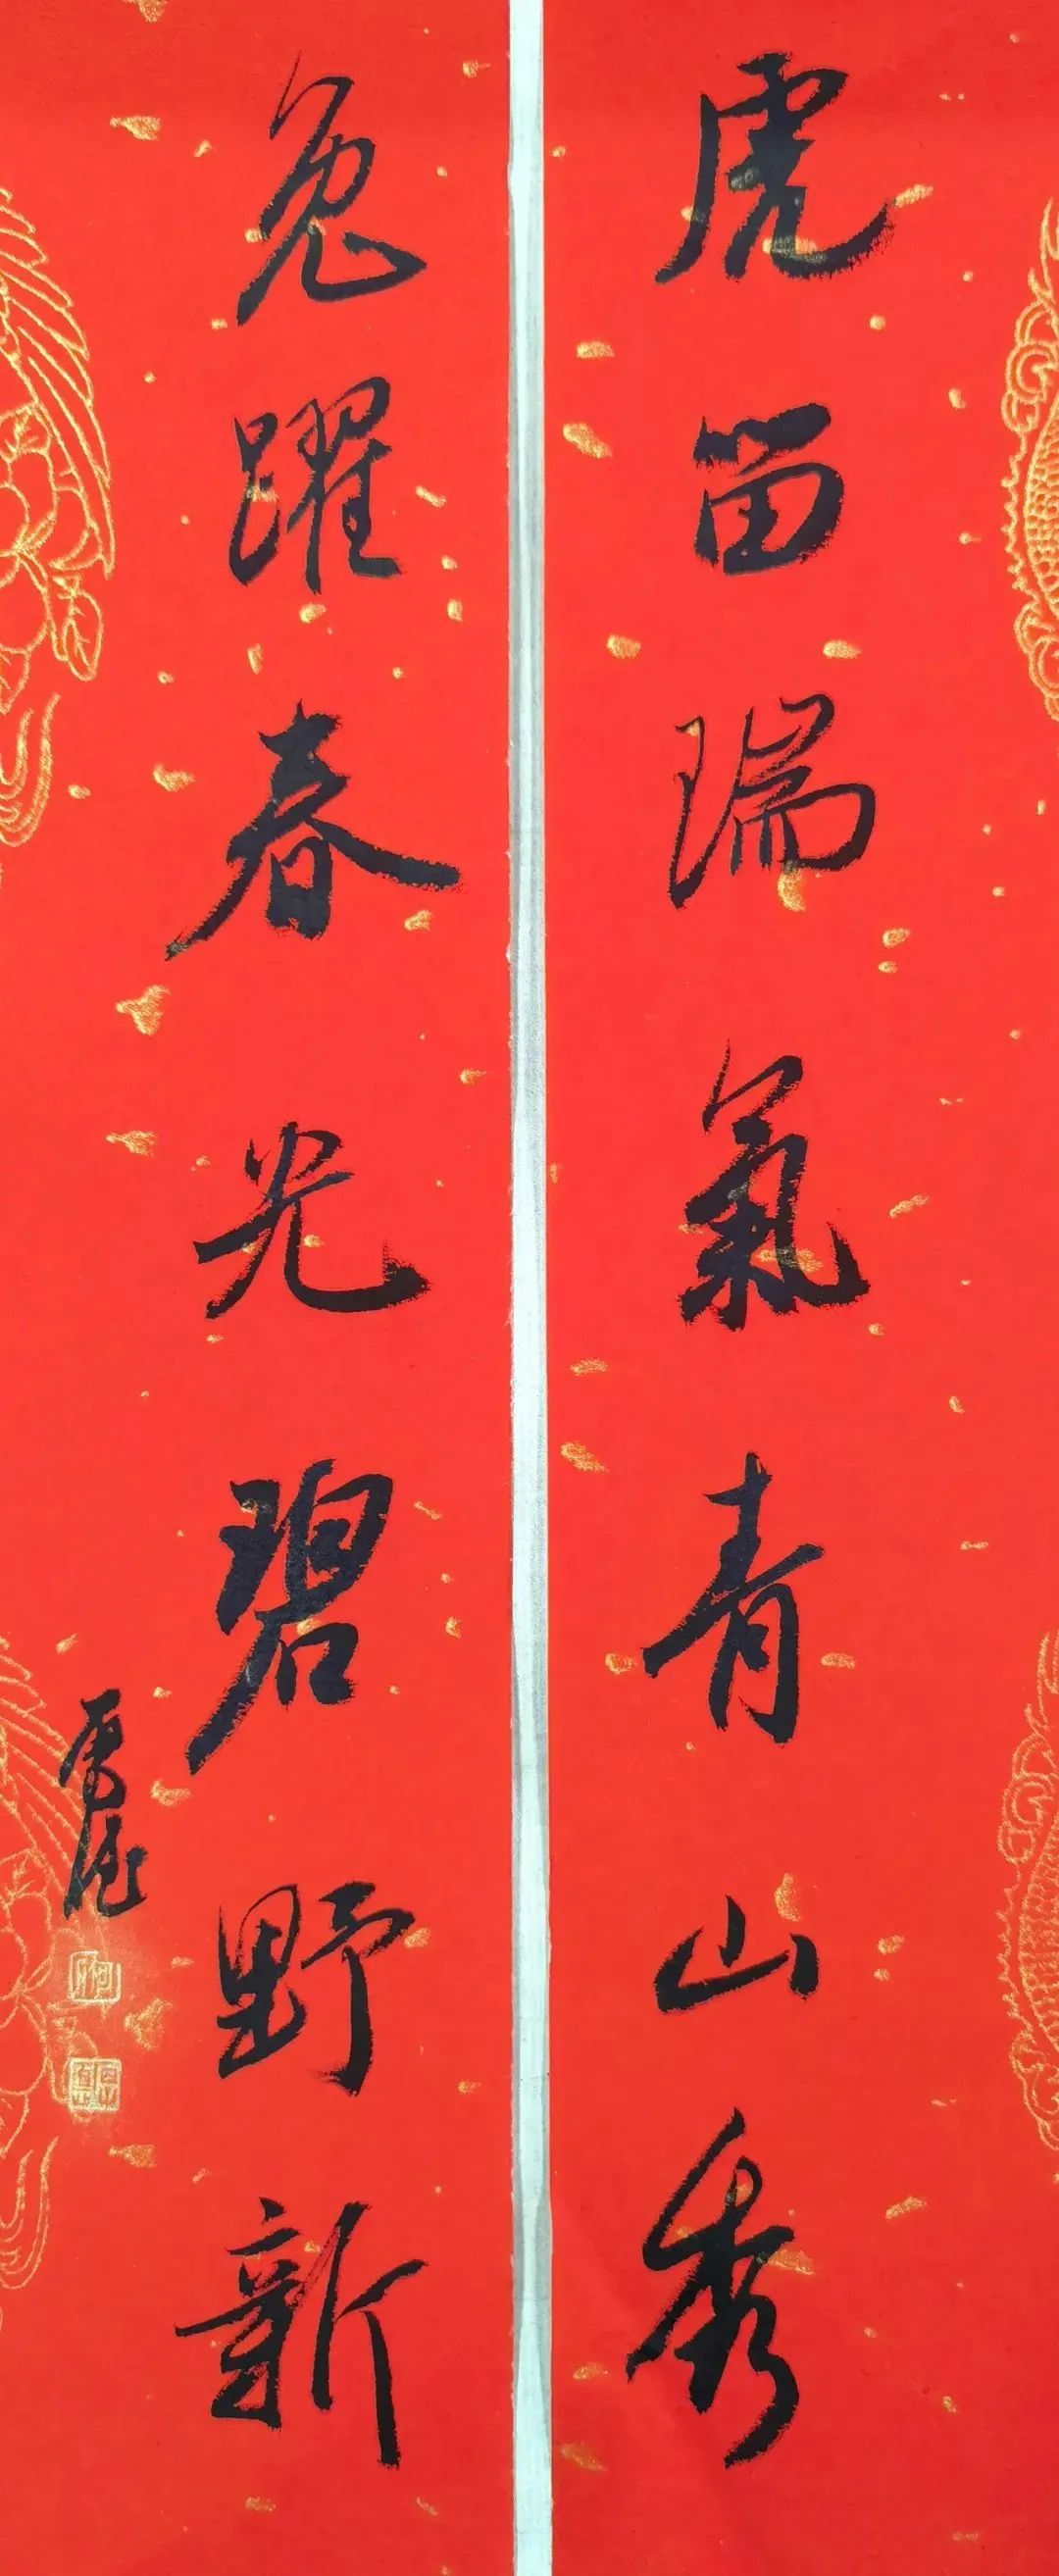 虎留瑞氣青山秀
兔躍春光碧野新